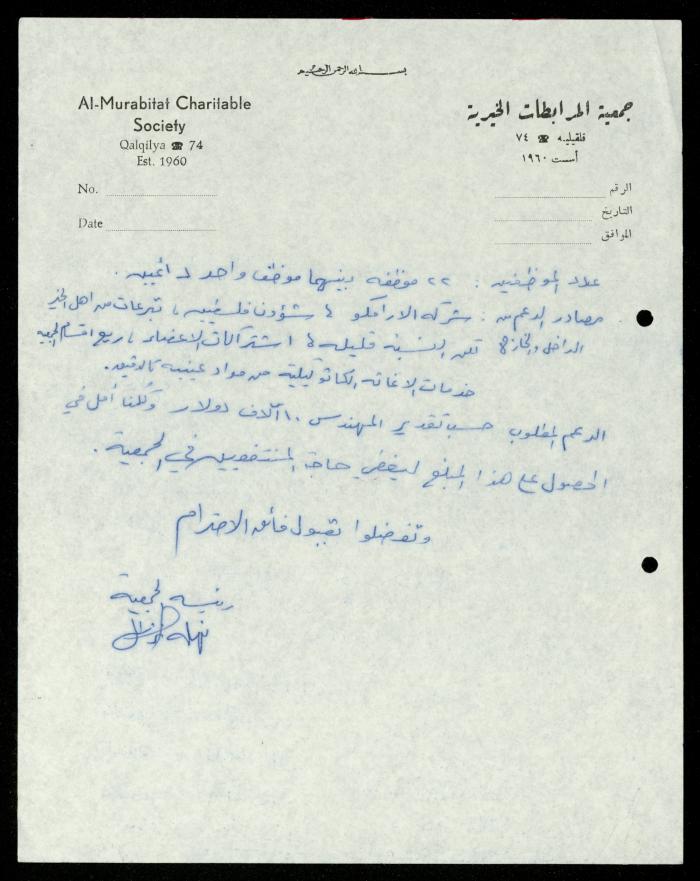 بسم الله الرحمن الرحيم
Al-Murabitat Charitable
Society
Qalqilya ☎ 74
Est. 1960
No.
Date
جمعية المرابطات الخيرية
قلقيليه ☎ ٧٤
أسست ١٩٦٠
الرقم
التاريخ
الموافق
عدد الموظفين : ٢٢ موظفه بينهما موظف واحد
مصادر الدعم من : شركة الارامكو ، شؤون فلسطين ، تبرعات من اهل الخير
الداخل والخارج لكن بنسبة قليلة ، اشتراكات الاعضاء ، ريع اقسام الجمعيه
خدمات الاغاثه الكاثوليكية من مواد عينيه كالدقيق.
الدعم المطلوب حسب تقدير المهندس ١٠ آلاف دولار وكلنا أمل في
الحصول على هذا المبلغ ليغطي حاجة المنتفعين في الجمعية .
وتفضلوا بقبول فائق الاحترام
رئيسه الجمعية
نهله